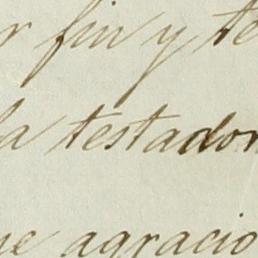 r fin y te
la testador
ue agracio